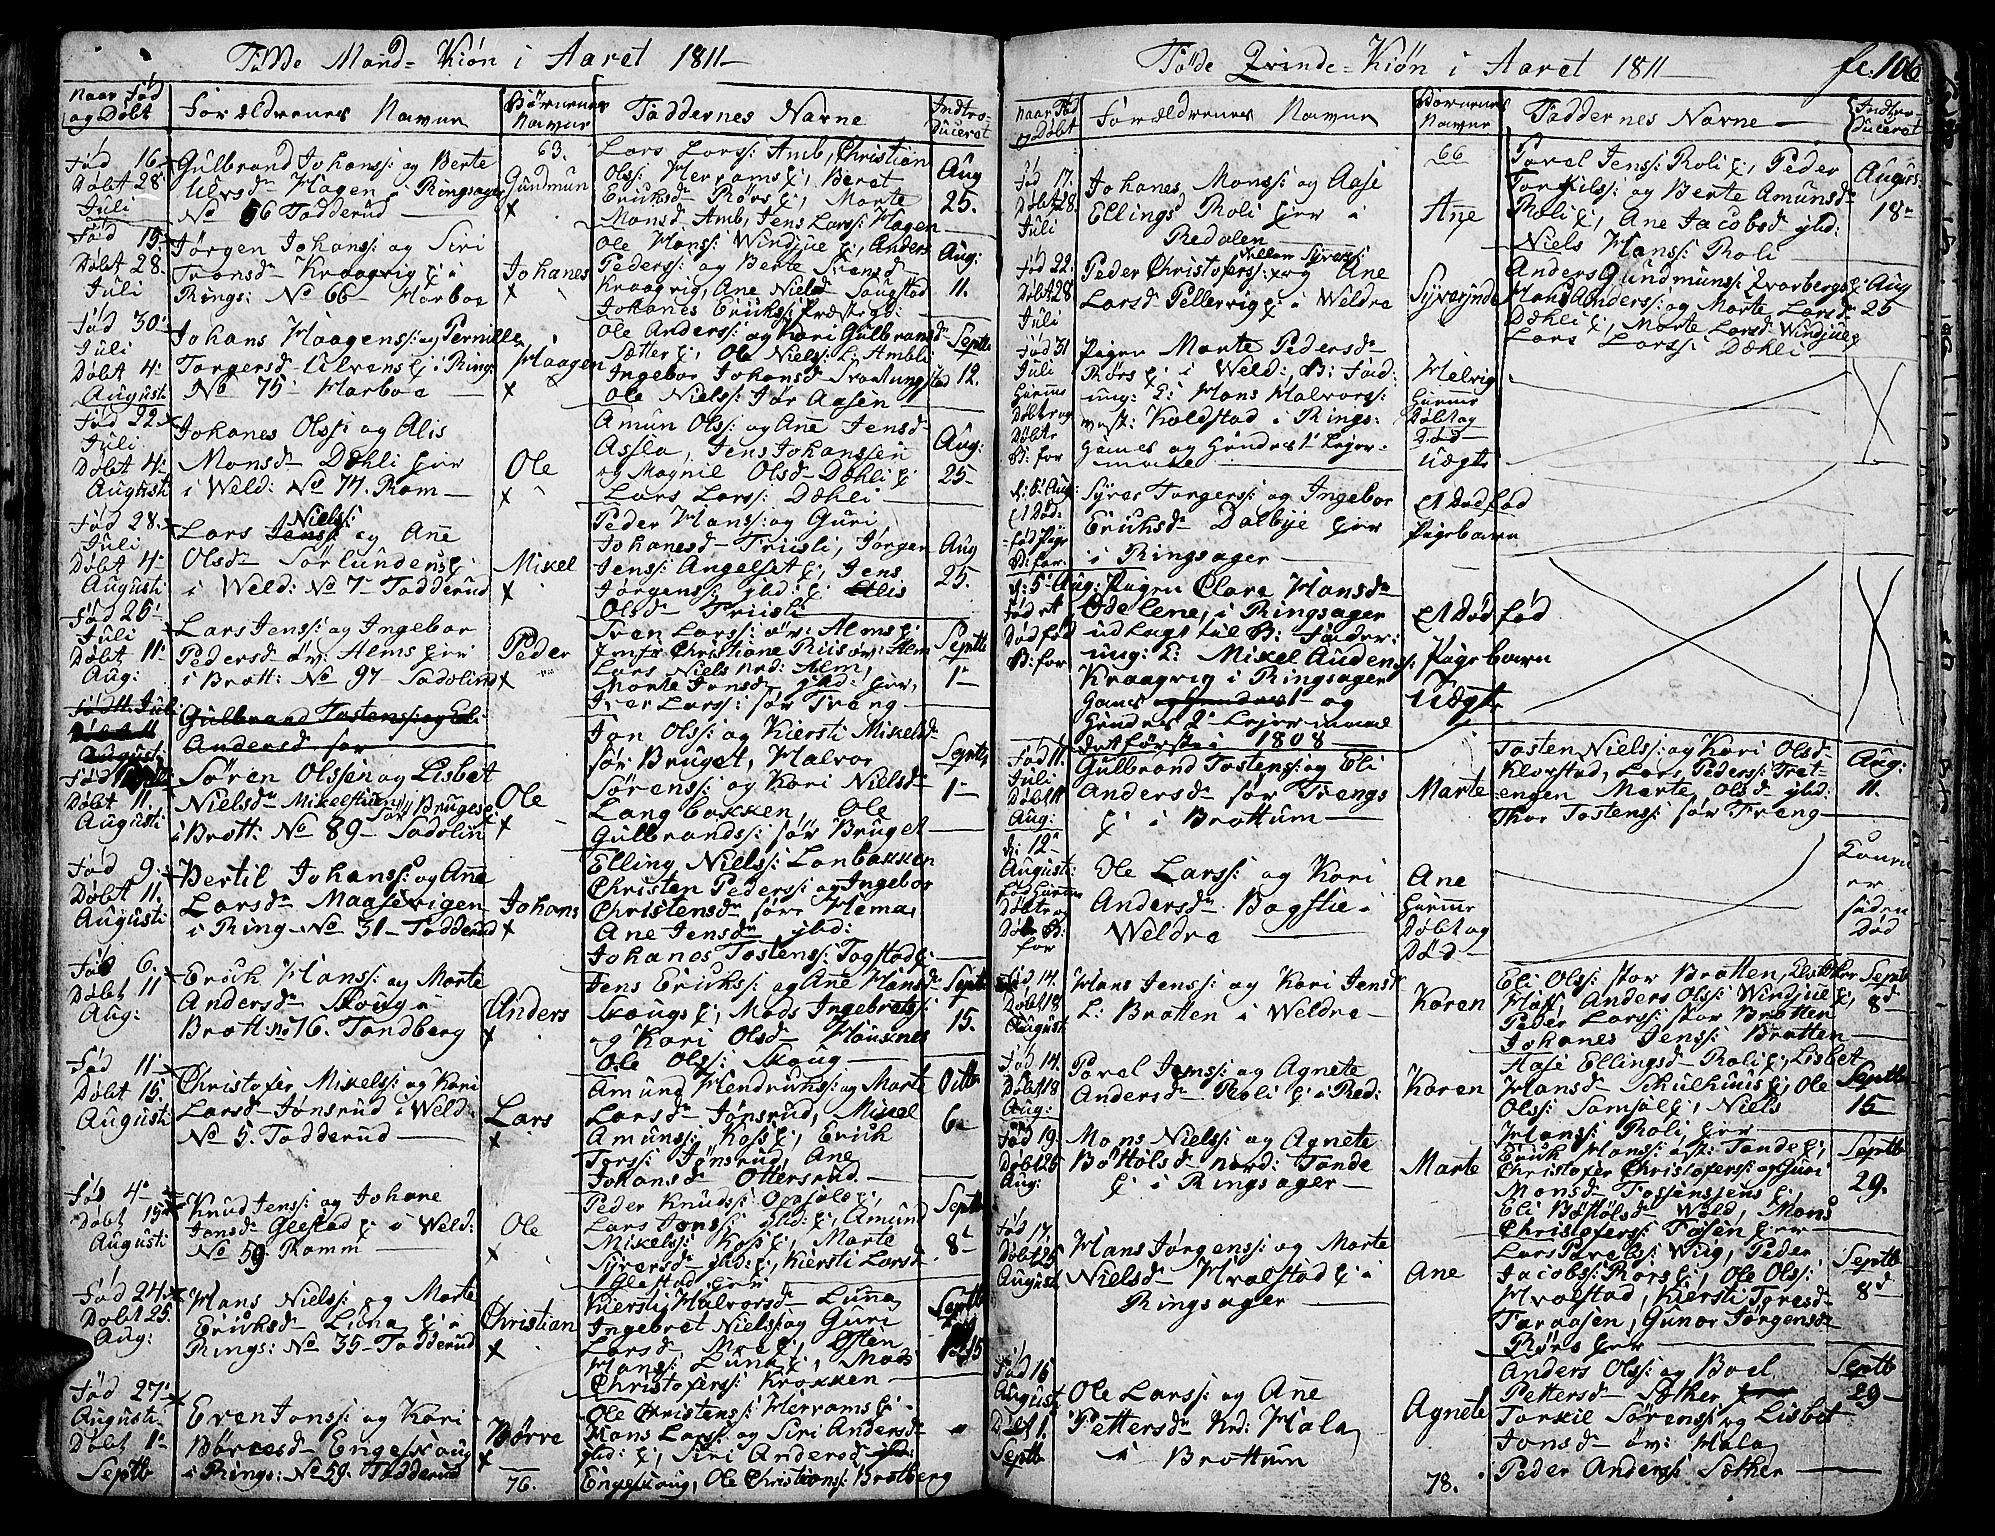 Fødde Mand-Kiøn i Aaret 1811-
Naar Fød og Døbt
Forældrenes Navne
Børnenes Navne
Faddernes Navne
Introduceret
63.
Fød 16
Døbt 28
Juli
Gulbrand Johanss: og Berte
Ulvsd Hagen i Ringsager
No 56 Tadderud
Gundmun
Lars Larss: Amb, Christian
Olss: Herramsei, Beret
Ericksd Rørs ei, Marte
Monsd Amb, Jens Larss: Hagen
Aug
25.
Fød 15
Døbt 28.
Juli
Jørgen Johanss: og Siri
Tronsd Kraagvig ei i
Rings: No 66 Harboe
Johanes
Ole Hanss: Windjue ei, Anders
Pederss: og Berte Svensd
Kraagvig, Ane Nielsd Saugstad
Johanes Erickss: Præstegd:
Aug:
11.
Fød 30
Juli
Døbt 4
August:
Johans Haagenss: og Pernille
Torgersd Ulvens ei i Ring:
No 75 Harboe
Haagen
Ole Anderss: og Kari Gulbransd
Sætter ei, Ole Nielss: L: Ambli
Ingebor Johansd Svartungstad
Ole Nielss: Før Aasen
Septb
12.
Fød 22
Juli
Døbt 4
August:
Johanes Olss: og Alis
Monsd Dæhli her
i Weld: No 74. Ram
Ole
Amun Olss: og Ane Jensd
Assla, Jens Johanssen
og Magnil Olsd Dæhli ei
Lars Larss: Dæhli
Aug:
25
Fød 28
Juli
Døbt 4
Augusti
Lars Nielss: og Ane
Olsd Sørlundens ei
i Weld: No 7 Tadderud
Mikel
Peder Hanss: og Guri
Johanesd Triisli, Jørgen
Jenss: Angelset ei, Jens
Jørgenss: gld: ei Alis
Olsd Triisli
Aug
25.
Fød 25
Juli
Døbt 11
Aug:
Lars Jenss: og Ingebor
Pedersd øv: Alms her
i Brøtt: No 97 Sadolin
Peder
Sven Larss: øv: Alms ei
Jmfr Christiane Riis øv: Alm
Lars Niels nrd: Alm,
Marte Jonsd gld: her,
Iver Larss: før Træng
Septb
1
Fød 11 Juli
Døbt 11
August:
Gulbrand Tostenss: og Eli
Andersd før
Døbt 11.
Augusti
Søren Olssen og Lisbet
Nielsd Mikelstuen før Bruges ei
i Brøtt: No 89 Sadolin
Ole
Jon Olss: og Kiersti Mikelsd
før Bruget, Halvor
Sørenss: og Kari Nielsd
Langbakken Ole
Gulbrandss: før Bruget
Septb
1
Fød 9.
Døbt 11.
August:
Bertil Johanss: og Ane
Larsd Maasevigen
i Ring No 31 Tadderud
Johans
Elling Nielss: Lanbakken
Christen Pederss: og Ingebor
Christensd føre Hema,
Ane Jensd gld:
Johanes Tostenss: Togstad ei
Fød 6.
Døbt 11
Aug:
Erick Hanss: og Marte
Andersd Skoug i
Brøtt: no 76. Tandberg
Anders
Jens Ericks: og Ane Hansd
Skougs ei, Mads Ingebretss:
og Kari Olsd Housknes
Ole Olss: Skoug
Septb
15.
Fød 11
Døbt 15
August:
Christofer Mikelss: og Kari
Larsd Jønsrud i Weld
No 5. Tadderud
Lars
Amund Hendrickss: og Marte
Larsd Jønsrud, Mikel
Amunss: Koss ei, Erick
Torss: Jønsrud, Ane
Johansd Ottersrud.
Oitb
6
Fød 4
Døbt 15
August:
Knud Jenss: og Johane
Jonsd Glestad ei i Weld:
No 59 Ramm
Ole
Peder Knudss: Opsal ei,
Lars Jonss: gld: ei, Amund
Mikelss: Koss ei, Marte
Syversd gld: ei, Kiersti Larsd
Glestad her
Septb
8
Fød 24
Døbt 25.
Aug:
Hans Nielss: og Marte
Ericksd Luna ei i
Rings: No 35 Tadderud
Christian
Kiersti Halvorsd Lunna,
Ingebret Nielss: og Guri
Larsd Moe ei, Østen
Hanss: Luna ei, Mads
Christoferss: Krokken
Septb
15
Fød 27
Augusti
Døbt 1
Septb
Even Jonss: og Kari
Børresd Engelskoug
i Rings: No 59. Tadderud
Børre
76.
Ole Christenss: Herrams ei
Hans Larss: og Siri Andersd
gld: ei, Siri Andersd gld:
Engelskoug, Ole Christianss: Bratberg
Fødde Qvinde-Kiøn i Aaret 1811
fc. 106
Naar Fød og Døbt
Forældrenes Navne
Børnenes Navne
Faddernes Navne
Introduceret
66
Fød 17.
Døbt 28.
Juli
Johanes Monss: og Aase
Ellings Roli her i
Redalen
Ane
Pavel Jenss: Roli ei, Peder
Torkilss: og Berte Amunsd
Roli ei, Ane Jacobsd gld:
Niels Hanss: Roli
Augus:
18
Fød 22
Døbt 28
Juli
Peder Christoferss: og Ane
Larsd Pellervig ei i Weldre
Syversynde
Anders Gundmuns: Qvarberg ei
Hans Anderss: og Marte Larsd
Dæhli ei, Marte Larsd Windjue ei
Lars Larss: Dæhli
Aug
25
Fød 31
Juli
Døbt og
B: for
Pigen Marte Pedersd
Rørs ei i Weld: B: Fad:
ung: L: Hans Halvorss:
vest: Kolstad i Rings:
hans og hendes 1 Leier-
maal
Helvig
Døbt og
Død
Uægte
d: 6 Aug:
et Død:
fød Pige
B: for
Syver Torgerss: og Ingebor
Ericksd Dalbye her
i Ringsager
et Dødfød
Pigebarn
d: 5 Aug:
Fød et
Dødfød
B: for
Pigen Clare Hansd
Odelene, i Ringsager
udlagt til B: Fader:
ung: L: Mikel Andersss:
Kraagvig i Ringsager
hans og hendes 1 og
hendes 2 Leiermaal
det første i 1808
et Død fød
Pigebarn
Uægte
Fød 11.
Juli
Døbt 11
Aug:
Gulbrand Tostenss: og Eli
Andersd før Trængs
ei i Brøttum
Marte
Tosten Nielss: og Kari Olsd
Klovstad, Lars Pederss: Tret-
engen Marte Olsd gld:
Thor Tostenss: før Træng
Aug:
11.
d: 12
August:
Ole Larss: og Kari
Andersd Bagstie i
Weldre
Ane
Døbt og
Død
Konen
er
siden
Død
Fød 14.
Døbt 18
August
Hans Jenss: og Kari Jensd
L: Bratten i Weldre
Karen
Eli Olss: stor Bratten, Lisbet
Anders Olss: Windjue ei,
Peder Larss: stor Bratten
Johanes Jenss: Bratten
Septb
8
Fød 14.
Døbt 18
Aug:
Pavel Jenss: og Agnete
Andersd Roli ei i Red:
Karen
Aase Ellingsd Roli ei, Lisbet
Hansd Skulhuus ei, Ole
Olss: Samsal ei, Niels
Hanss: Roli her
Septb
15
Fød 19.
Døbt 25
Aug:
Mons Nielss: og Agnete
Bottolsd nord: Tande
ei i Ringsager
Marte
Erick Hanss: øst: Tande ei,
Christofer Christoferss: og Guri
Monsd Tossensjens ei,
Eli Bottolsd Weld, Mons
Christoferss: Fosen her
Septb
29.
Fød 17.
Døbt 25
August
Hans Jørgenss: og Marte
Nielsd Hvalstad ei i
Ringsager
Ane
Lars Pavelss: Wiig, Peder
Jacobss: Rørs ei, Ole Olss:
Hvalstad, Kiersti Toresd
Taraasen, Gunor Jørgensd
Rørs her
Septb
8
Fød 16
August
Døbt 1.
Septb
Ole Larss: og Ane
Pettersd Nrd: Hala,
i Brøttum
Agnete
78.
Anders Olss: og Boel
Pettersd Sæther
Torkil Sørenss: og Lisbet
Jonsd øv: Hala,
Peder Anderss: Sæther
Septb
29